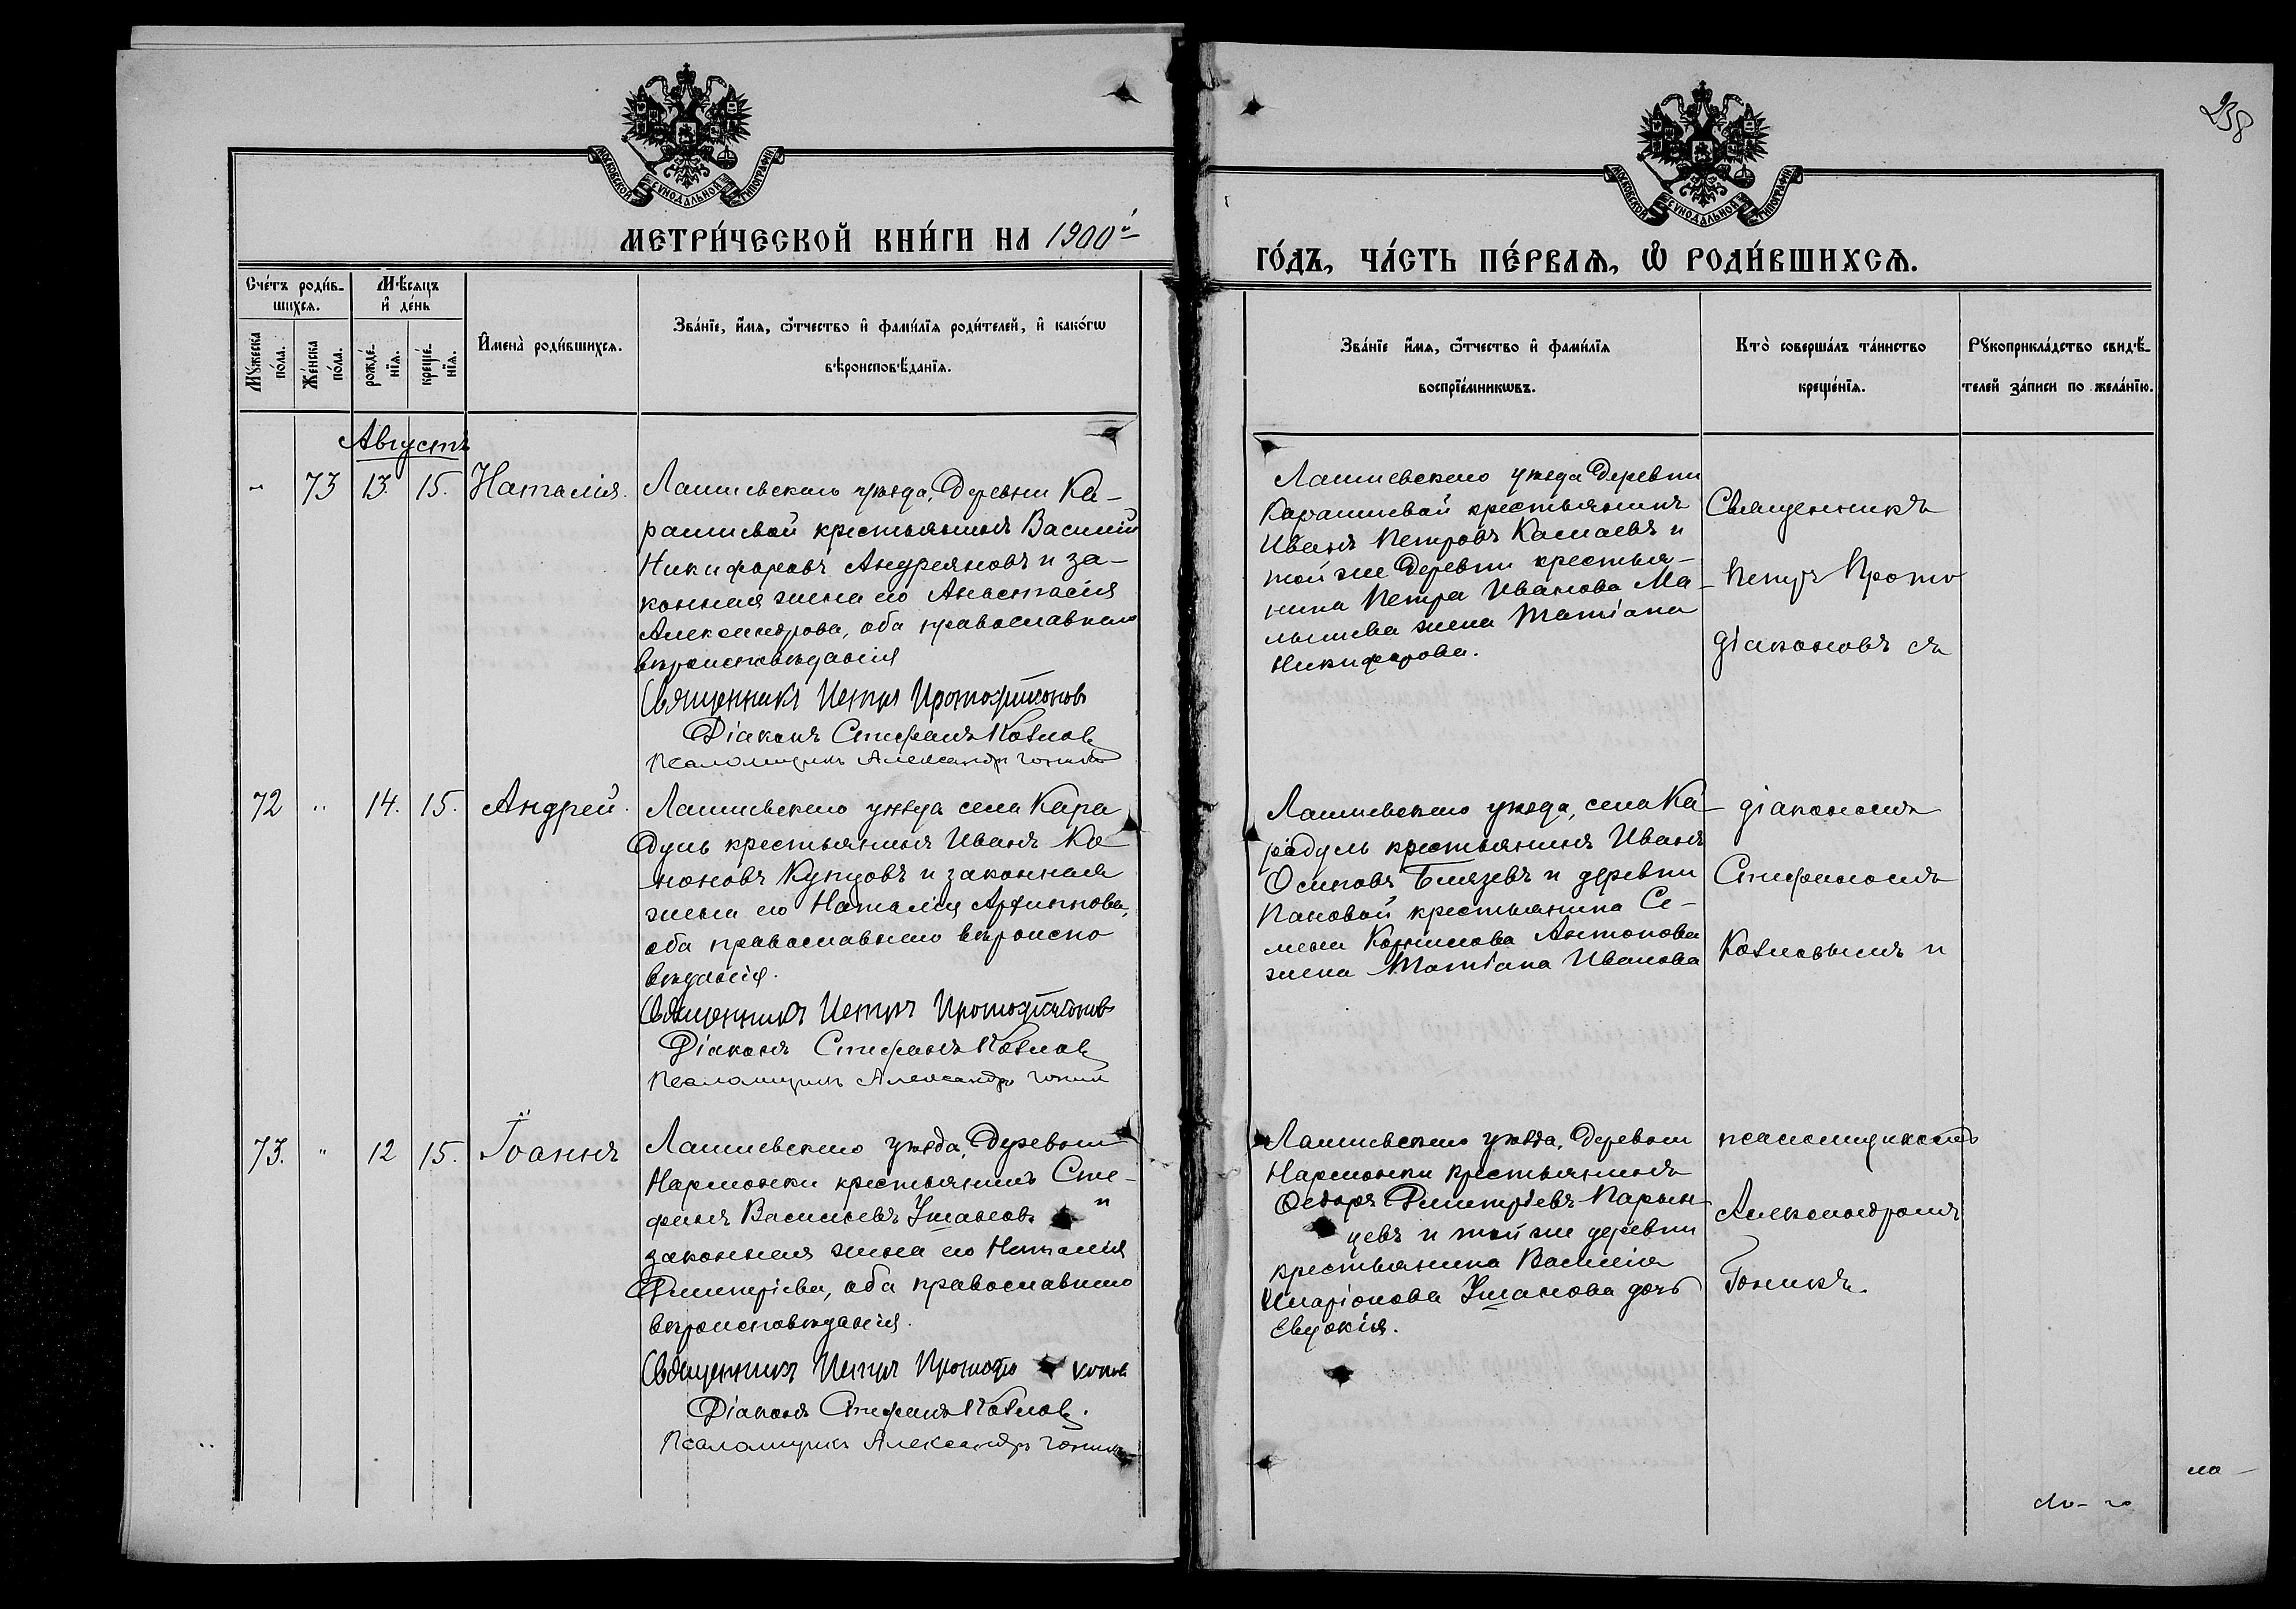 238
МОСКОВСКОЙ СѴНОДАЛЬНОЙ ТИПОГРАФІИ
МОСКОВСКОЙ СѴНОДАЛЬНОЙ ТИПОГРАФІИ
МЕТРИ́ЧЕСКОЙ КНИ́ГИ НА 1900й
ГО́ДЪ, ЧА́СТЬ ПЕ́РВАЯ, Ѡ РОДИ́ВШИХСЯ.
Сче́тъ роди́в-
шихся.
Мѣ́сяцъ
и де́нь
Му́жеска
по́ла.
Же́нска
по́ла.
рожде́-
нїя.
креще́-
нїя.
Имена̀ роди́вшихся.
Зва́нїе, и́мя, ѻ́тчество и фами́лїя роди́телей, и како́гѡ
вѣроисповѣ́данїя.
Зва́нїе и́мя, ѻ́тчество и фами́лїя
воспрїе́мникѡвъ.
Кто̀ соверша́лъ та́инство
креще́нїя.
Рукоприкла́дство свидѣ́-
телей за́писи по жела́нїю.
Августъ
" 73 13. 15. Наталія.
Лаишевскаго уѣзда, Деревни Ка-
раишевой крестьянинъ Василій
Никифоровъ Андреяновъ и за-
конная жена его Анастасія
Александрова, оба православнаго
вѣроисповѣданія
Священникъ Петръ Протодіаконовъ
Діаконъ Стефанъ Козлов
Псаломщикъ Александръ Гоникъ
Лаишевскаго уѣзда Деревни
Караишевой крестьянинъ
Иванъ Петровъ Камаевъ и
той же Деревни крестья-
нина Петра Иванова Ма-
лышева жена Татіана
Никифорова.
Священникъ
Петръ Прото
діаконовъ съ
72 " 14. 15. Андрей.
Лаишевскаго уѣзда села Кара
дуль крестьянинъ Иванъ Ко
ноновъ Купцовъ и законная
жена его Наталія Архиппова,
оба православнаго вѣроиспо
вѣданія.
Священникъ Петръ Протодіаконовъ
Діаконъ Стефанъ Козлов
Псаломщикъ Александръ Гоникъ
Лаишевскаго уѣзда, села Ка-
радуль крестьянинъ Иванъ
Осиповъ Блязевъ и деревни
Пановой крестьянина Се-
мена Корнилова Антонова
жена Татіана Иванова
діакономъ
Стефаномъ
Козловымъ и
73. " 12 15. Іоаннъ
Лаишевскаго уѣзда, Деревни
Нармонки крестьянинъ Сте-
фанъ Васильевъ Ушаковъ и
законная жена его Наталія
Димитріева, оба православнаго
вѣроисповѣданія.
Священникъ Петръ Протодіаконов
Діаконъ Стефанъ Козлов.
Псаломщикъ Александръ Гоникъ
Лаишевскаго уѣзда, Деревни
Нармонки крестьянинъ
Ѳедоръ Димитріевъ Парын-
цевъ и той же деревни
крестьянина Василія
Иларіонова Ушакова дочь
Евдокія.
псаломщикомъ
Александромъ
Гоникъ.